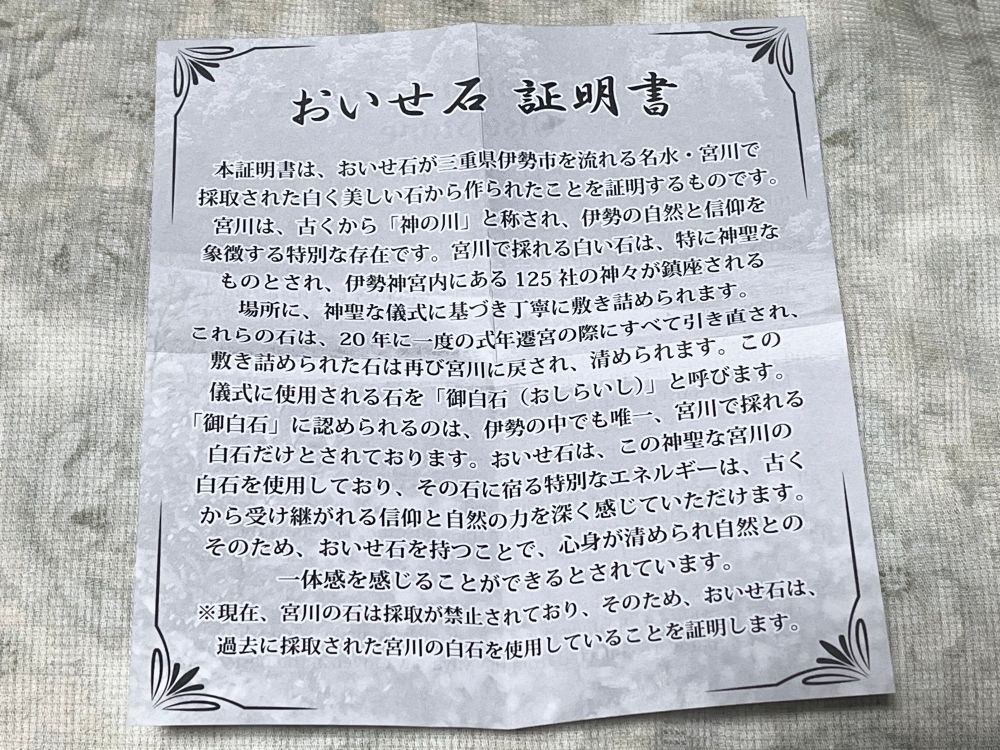 おいせ石 証明書
本証明書は、おいせ石が三重県伊勢市を流れる名水・宮川で
採取された白く美しい石から作られたことを証明するものです。
宮川は、古くから「神の川」と称され、伊勢の自然と信仰を
象徴する特別な存在です。宮川で採れる白い石は、特に神聖な
ものとされ、伊勢神宮内にある125社の神々が鎮座される
場所に、神聖な儀式に基づき丁寧に敷き詰められます。
これらの石は、20年に一度の式年遷宮の際にすべて引き直され、
敷き詰められた石は再び宮川に戻され、清められます。この
儀式に使用される石を「御白石（おしらいし）」と呼びます。
「御白石」に認められるのは、伊勢の中でも唯一、宮川で採れる
白石だけとされております。おいせ石は、この神聖な宮川の
白石を使用しており、その石に宿る特別なエネルギーは、古く
から受け継がれる信仰と自然の力を深く感じていただけます。
そのため、おいせ石を持つことで、心身が清められ自然との
一体感を感じることができるとされています。
※現在、宮川の石は採取が禁止されており、そのため、おいせ石は、
過去に採取された宮川の白石を使用していることを証明します。